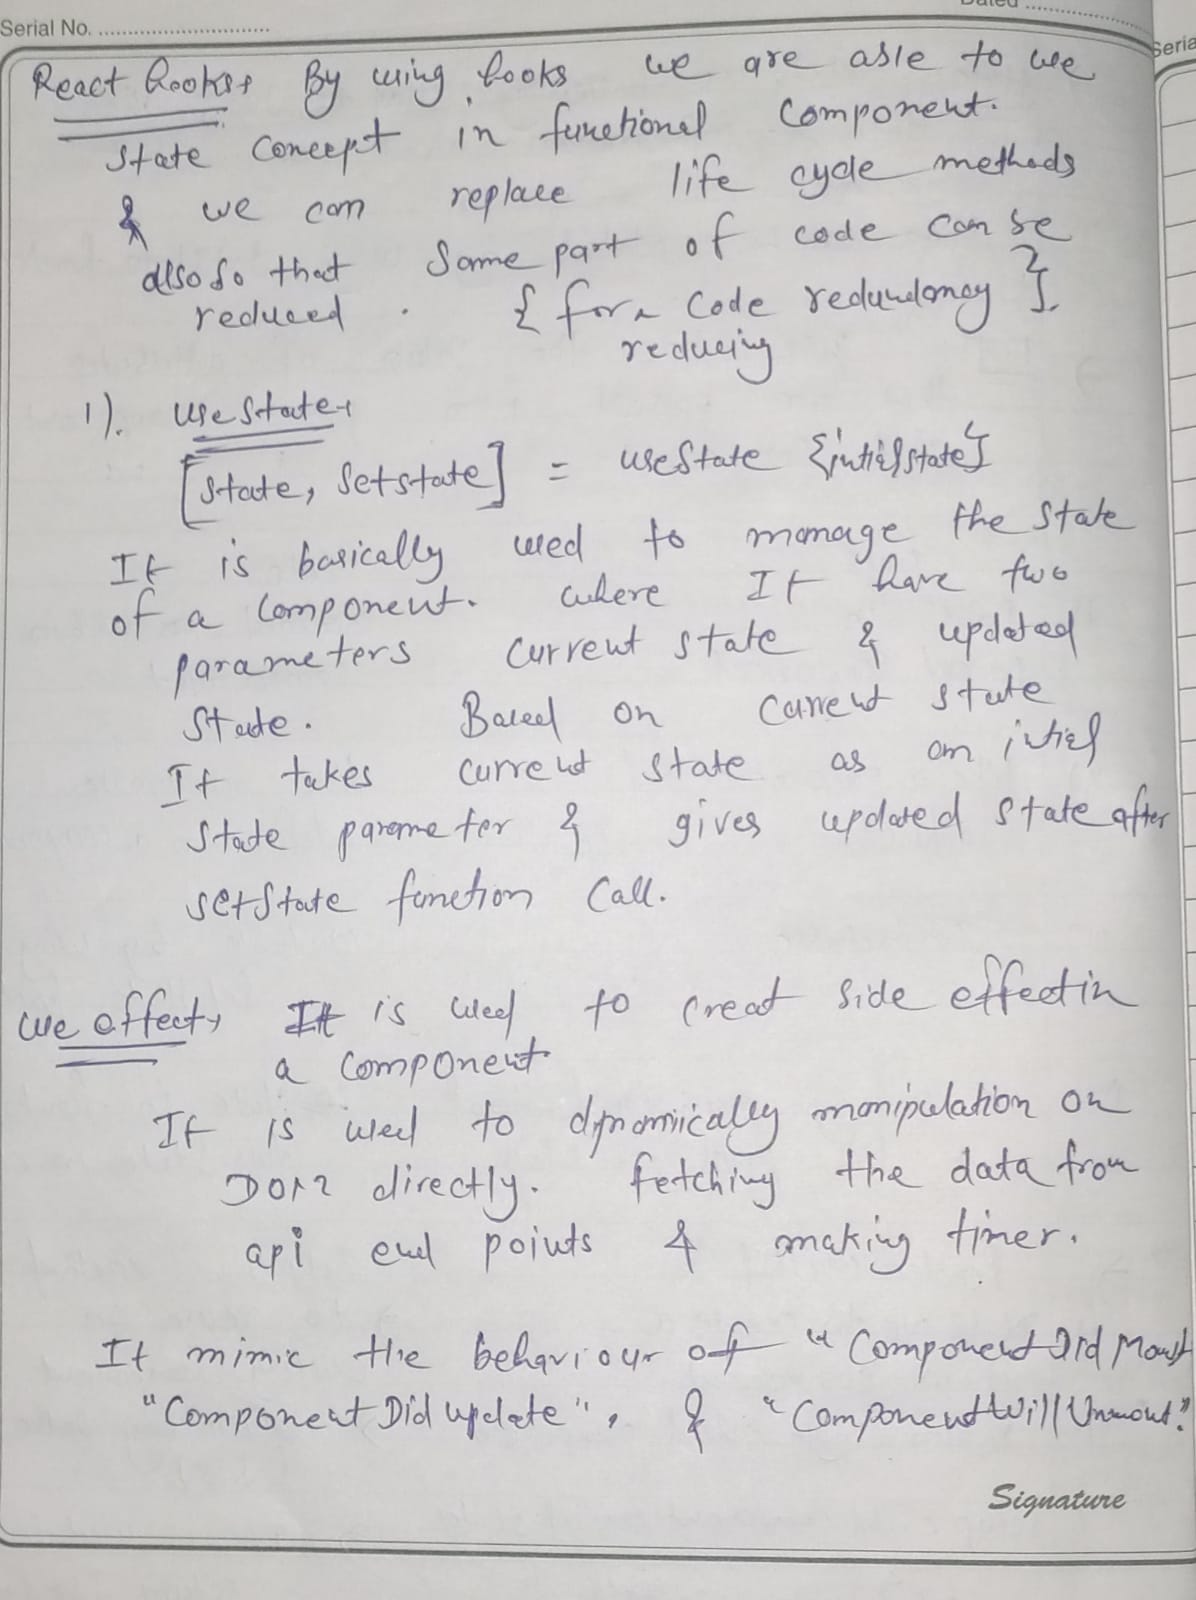 Serial No.
Dated
Seria
React hooks, By using hooks we are able to use
state concept in functional component.
& we can replace life cycle methods
also so that some part of code can be
reduced. { for a code redundancy }
reducing
1). useState,
[state, setstate] = useState {intialstate}
It is basically used to manage the state
of a component. where It have two
parameters current state & updated
state. Based on current state
It takes current state as an intial
state parameter & gives updated state after
setState function call.
use effect, It is used to creat side effect in
a component
It is used to dynamically manipulation on
DOM directly. fetching the data from
api end points & making timer.
It mimic the behaviour of "Component Did Mount
"Component Did update", & "Component Will Unmount."
Signature